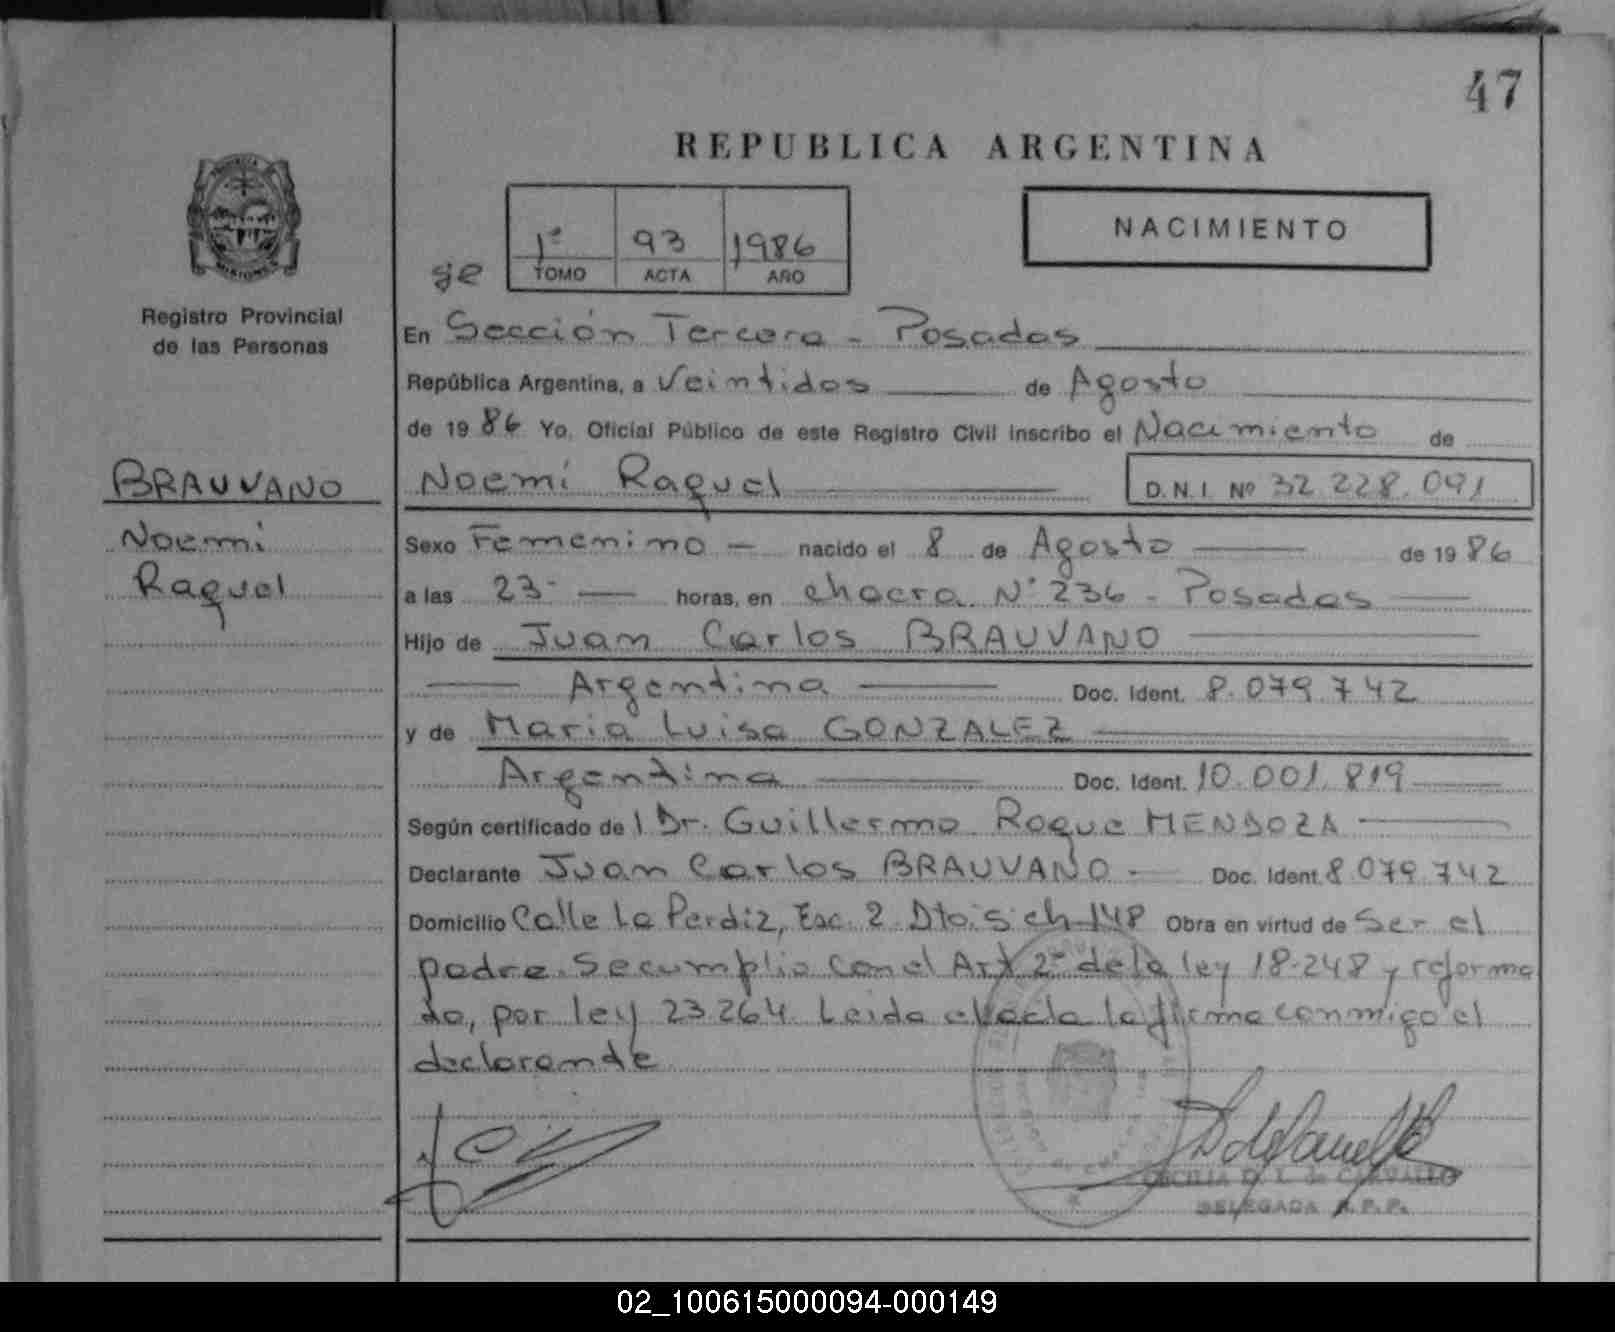 47
REPUBLICA ARGENTINA
NACIMIENTO
1º 93 1986
TOMO ACTA AÑO
Registro Provincial
de las Personas
BRAUVANO
Noemi
Raquel
En Sección Tercera - Posadas
República Argentina, a Veintidos de Agosto
de 1986 Yo, Oficial Público de este Registro Civil inscribo el Nacimiento de
Noemí Raquel D.N.I. Nº 32.228.091
Sexo Femenino - nacido el 8 de Agosto de 1986
a las 23- horas, en chacra Nº 236 - Posadas
Hijo de Juan Carlos BRAUVANO
Argentina Doc. Ident. 8.079.742
y de Maria Luisa GONZALEZ
Argentina Doc. Ident. 10.001.819
Según certificado de l Dr. Guillermo Roque MENDOZA
Declarante Juan Carlos BRAUVANO - Doc. Ident. 8.079.742
Domicilio Calle La Perdiz, Esc. 2 Dto. 5 ch 148 Obra en virtud de Ser el
padre. Se cumplio con el Art 2º de la ley 18.248 y reforma
da, por ley 23.264. Leida el acta la firma conmigo el
declarante
CECILIA D. L. de CARVALLO
DELEGADA R.P.P.
02_100615000094-000149